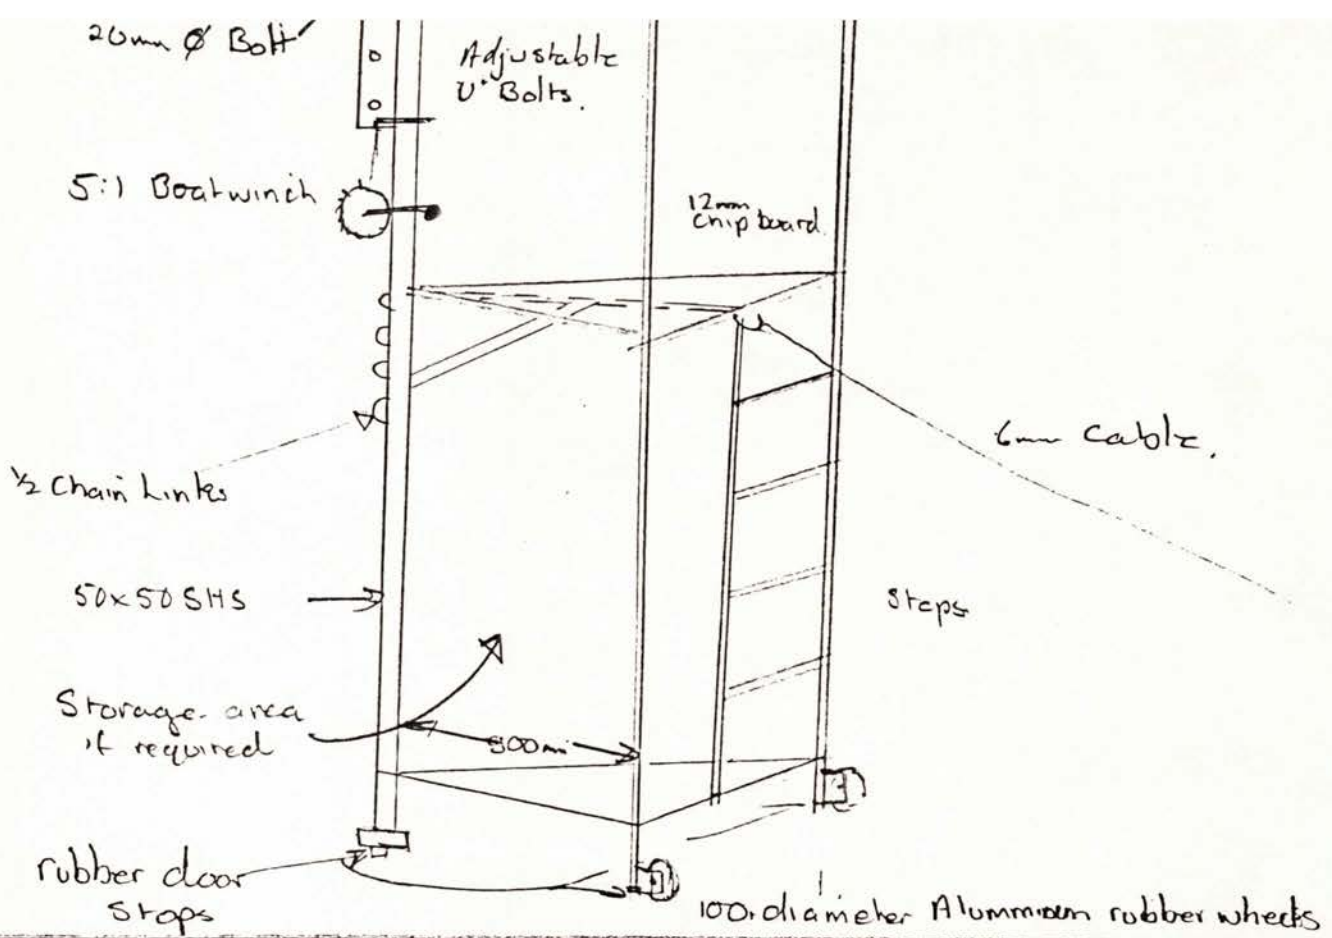 20mm Ø Bolt
Adjustable
U' Bolts.
5:1 Boatwinch
12mm
Chip board.
6mm Cable.
1/2 Chain Links
50x50 SHS
Steps
Storage area
if required
rubber door
Stops
100. diameter Alumminum rubber wheels